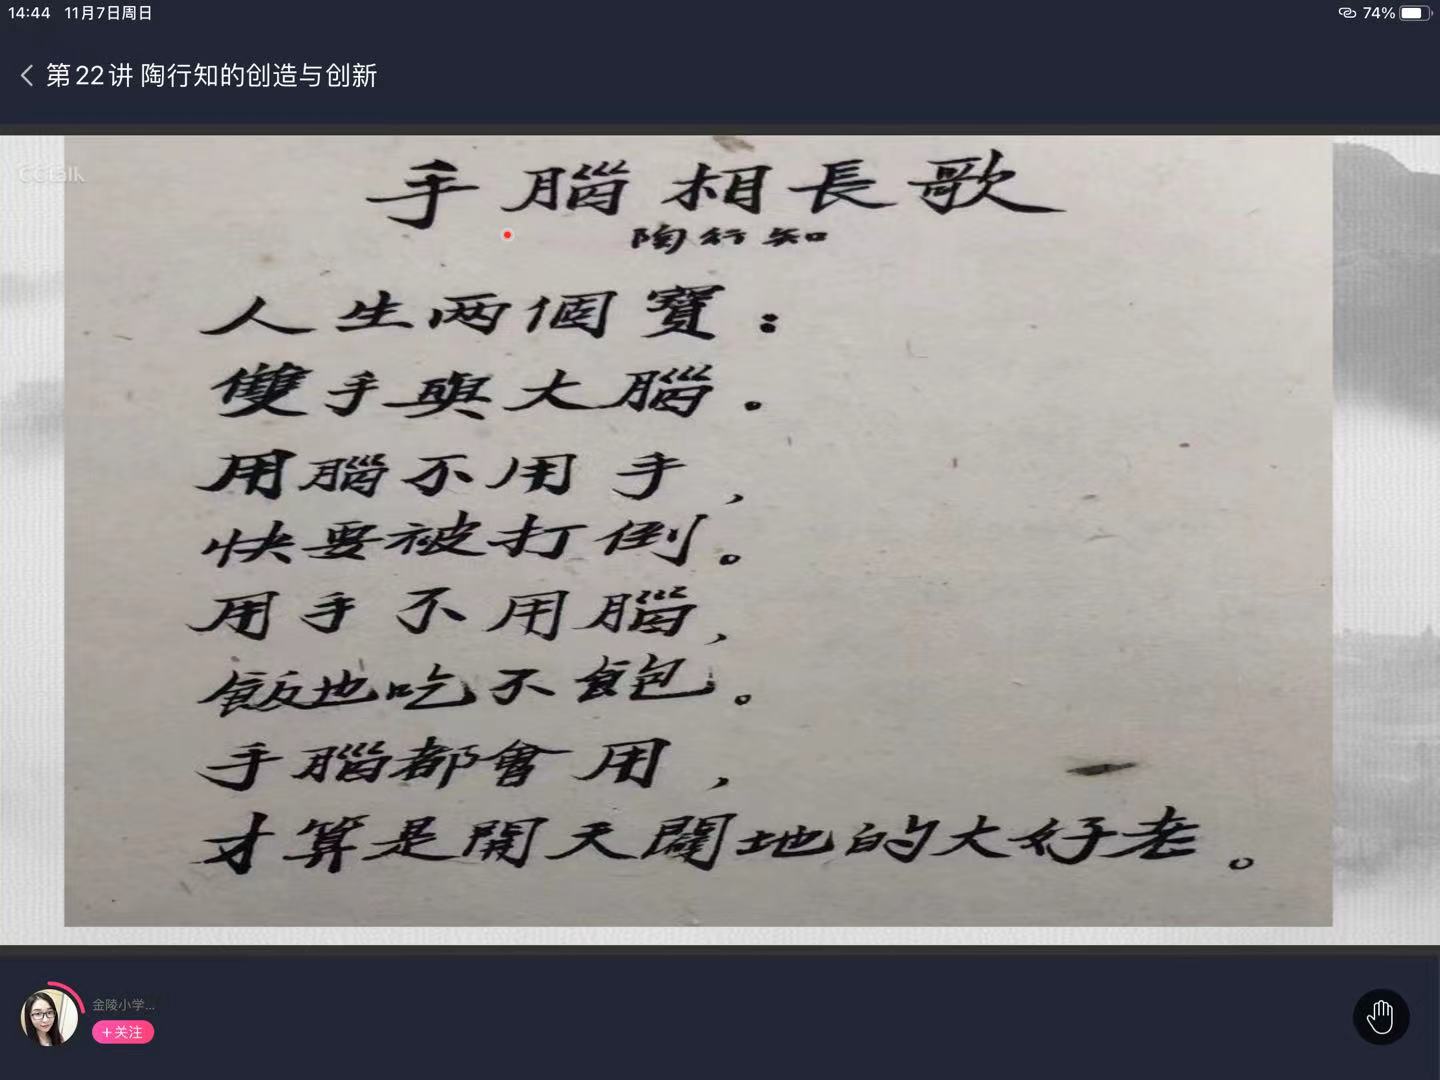 14:44 11月7日周日
74%
第22讲 陶行知的创造与创新
CCtalk
手腦相長歌
陶行知
人生两個寶：
雙手與大腦。
用腦不用手，
快要被打倒。
用手不用腦，
飯也吃不飽。
手腦都會用，
才算是開天闢地的大好老。
金陵小学...
+关注